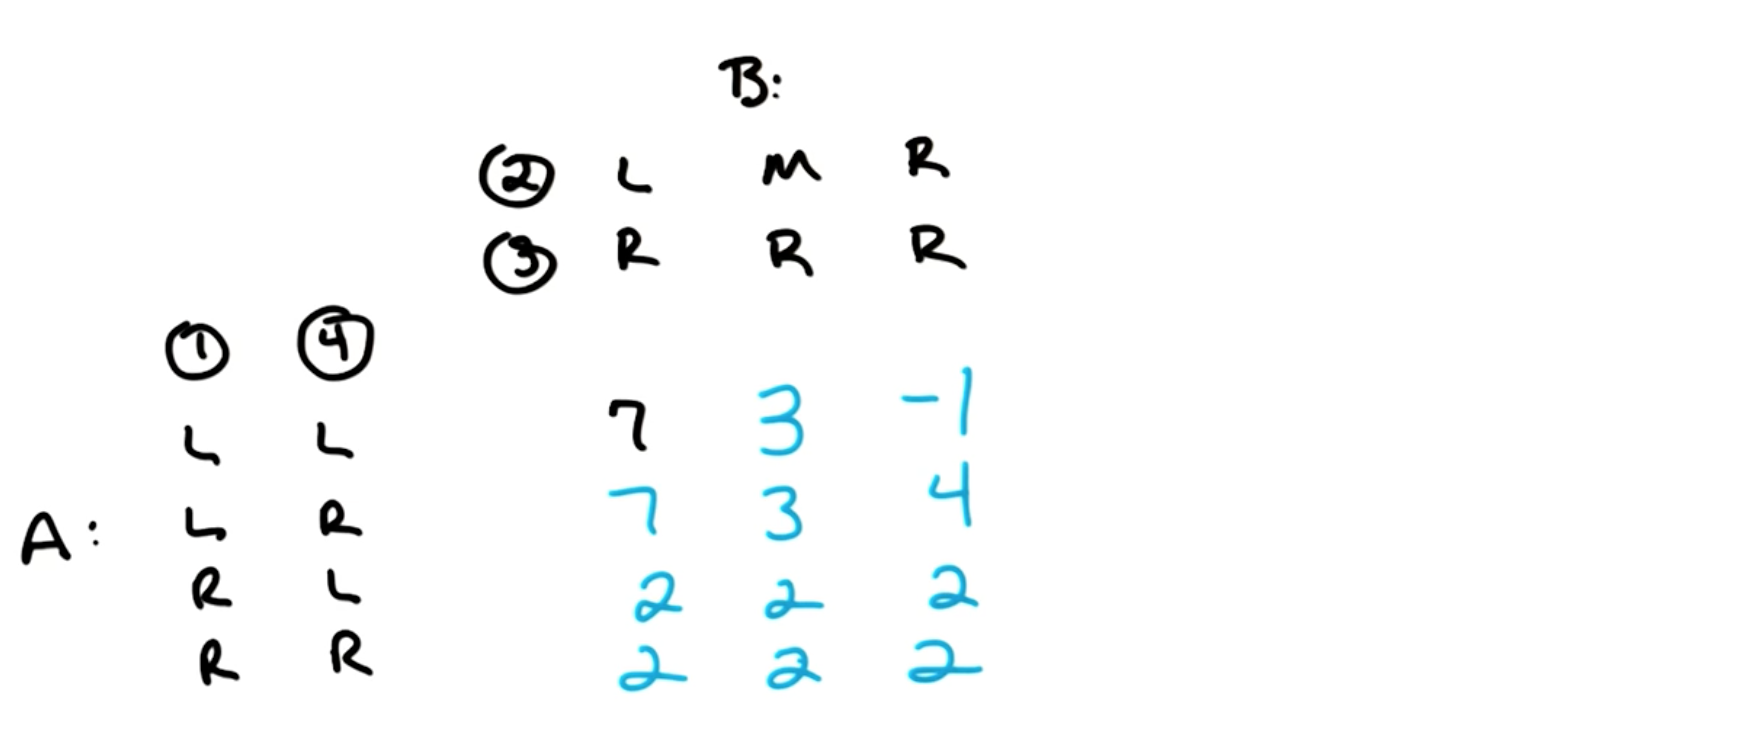 B:
② L M R
③ R R R
① ④
L L 7 3 -1
A: L R 7 3 4
R L 2 2 2
R R 2 2 2